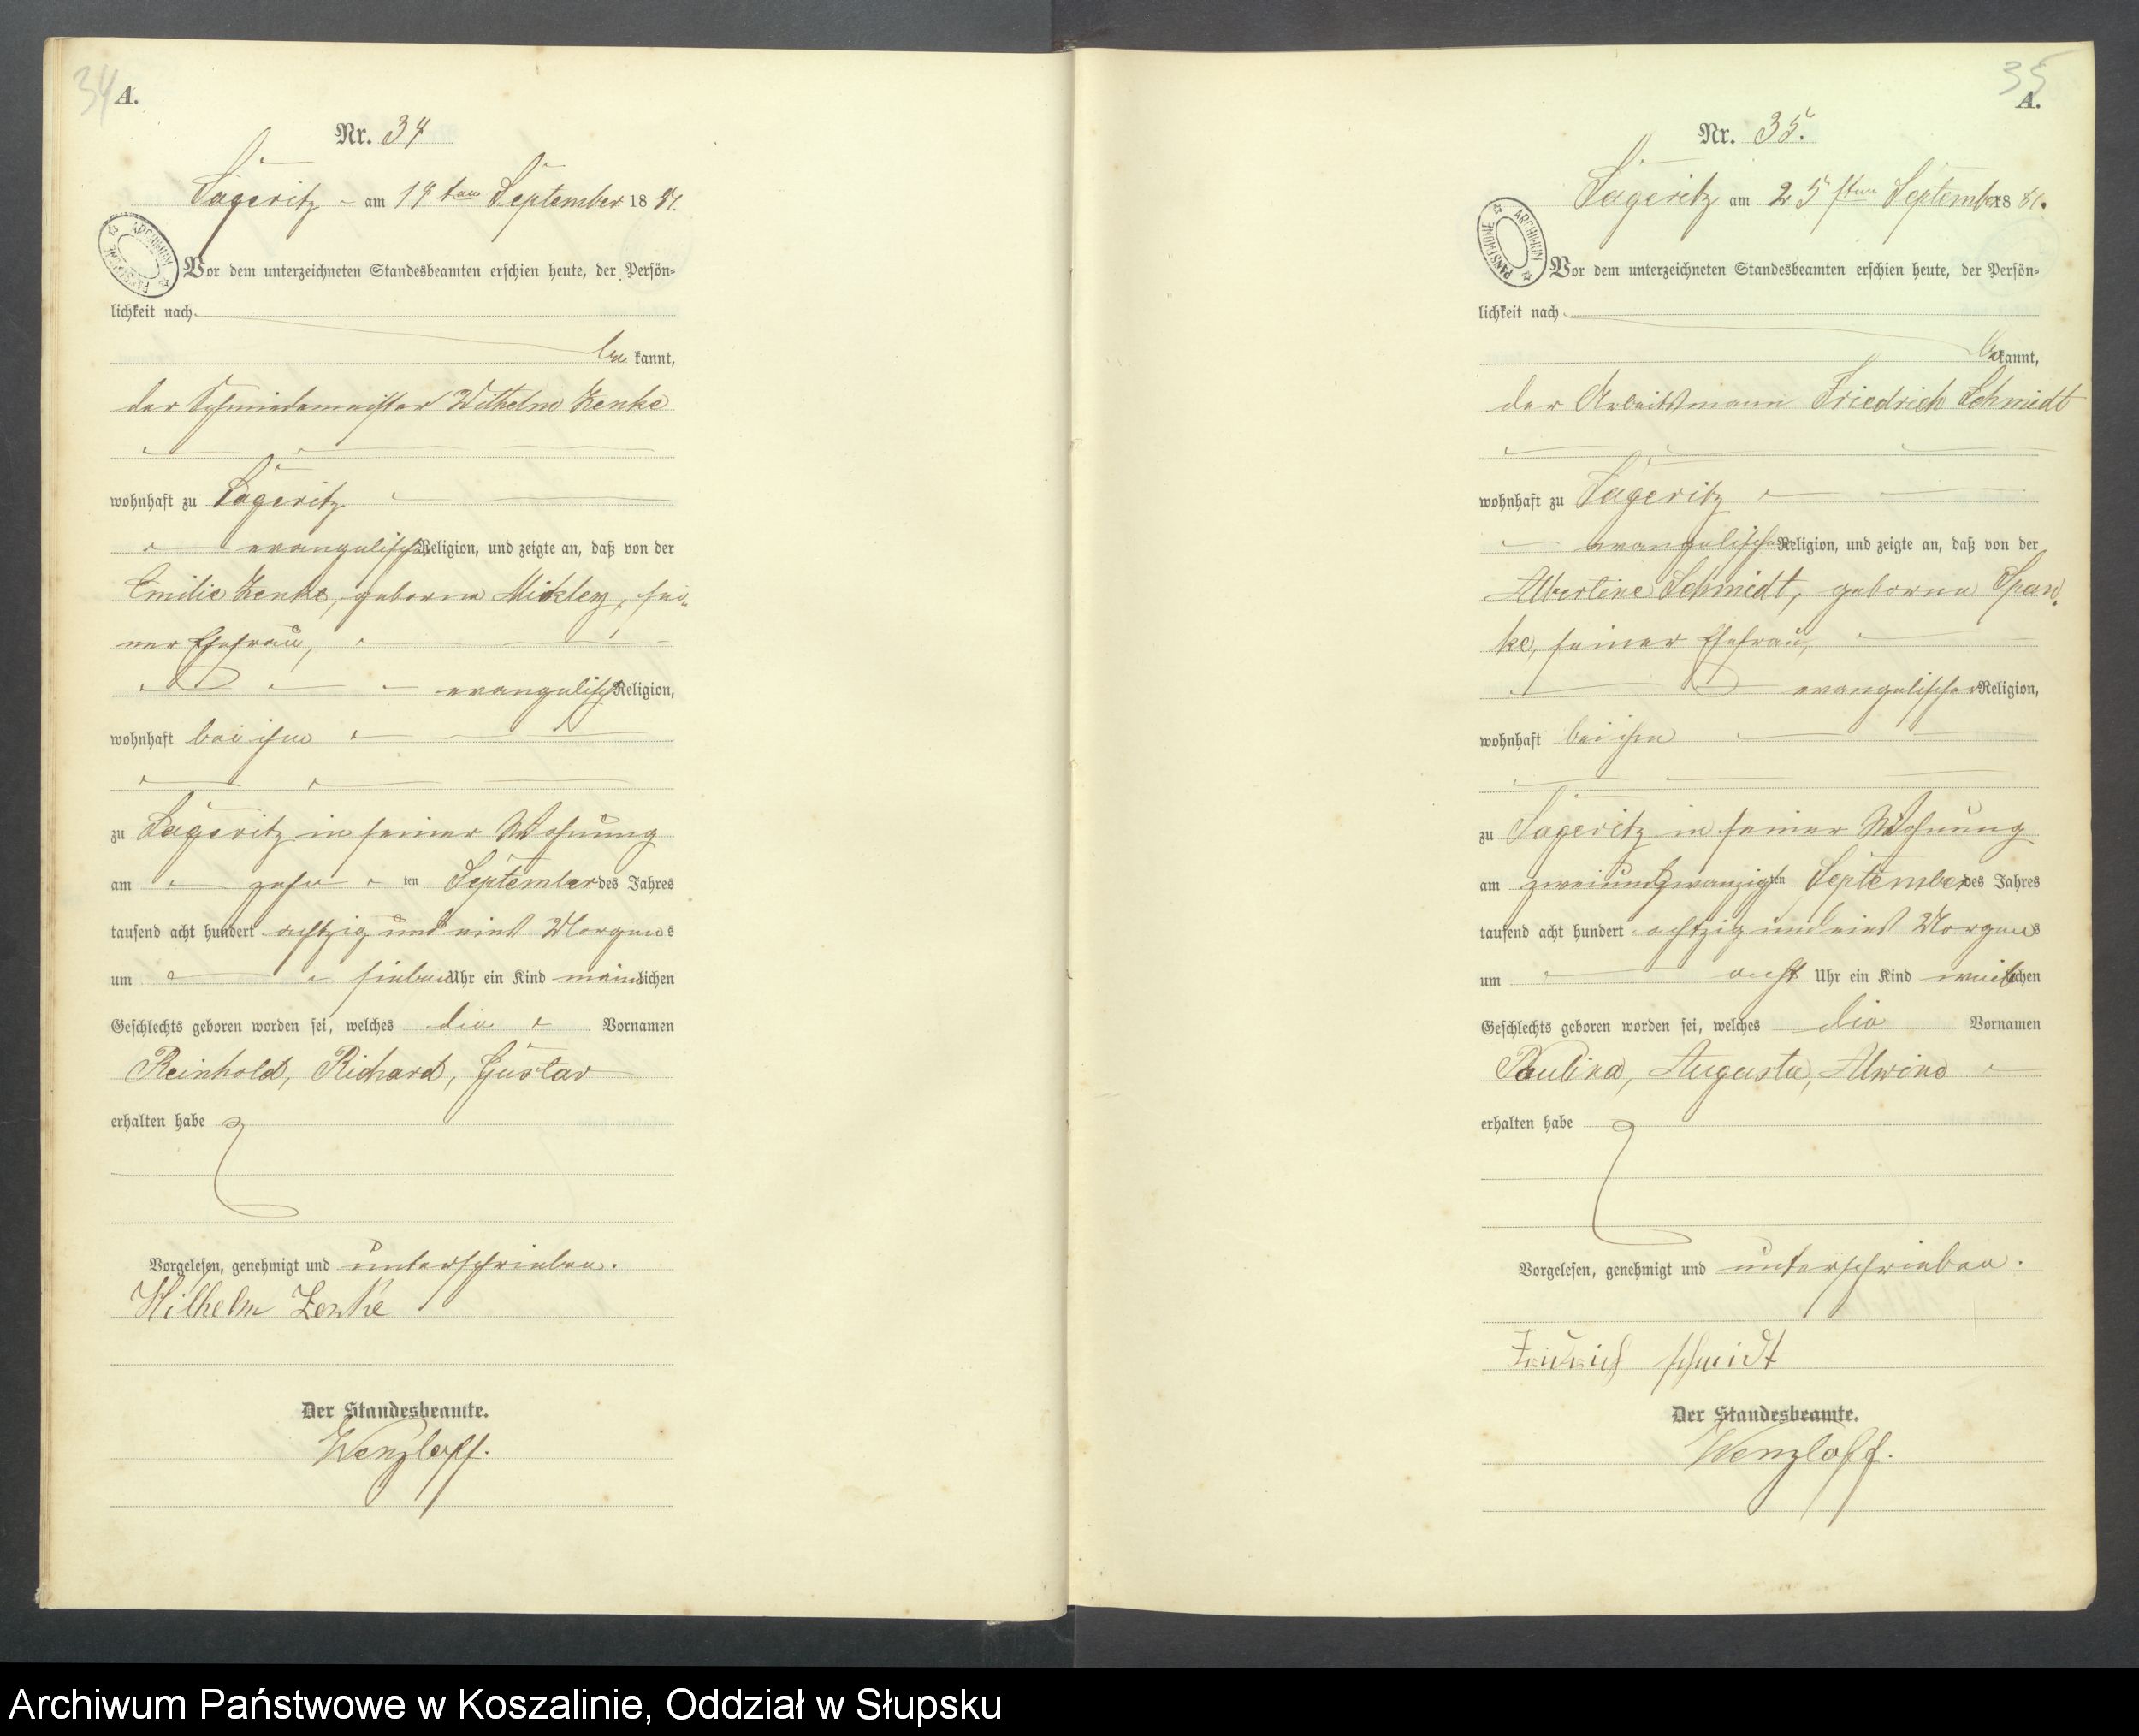 34
A.
Nr. 34
Sageritz am 14ten September 1881.
ARCHIWUM PAŃSTWOWE
Vor dem unterzeichneten Standesbeamten erschien heute, der Persön-
lichkeit nach
be kannt,
der Schmiedemeister Wilhelm Zenke
wohnhaft zu Sageritz
evangelischer Religion, und zeigte an, daß von der
Emilie Zenke, geborne Mickley, sei-
ner Ehefrau,
evangelischer Religion,
wohnhaft bei ihm
zu Sageritz in seiner Wohnung
am zehn ten September des Jahres
tausend acht hundert achtzig und eins Morgens
um sieben Uhr ein Kind männlichen
Geschlechts geboren worden sei, welches die Vornamen
Reinhold, Richard, Gustav
erhalten habe
Vorgelesen, genehmigt und unterschrieben.
Wilhelm Zenke
Der Standesbeamte.
Wenzlaff.
35
A.
Nr. 35.
Sageritz am 25sten September 1881.
ARCHIWUM PAŃSTWOWE
Vor dem unterzeichneten Standesbeamten erschien heute, der Persön-
lichkeit nach
be kannt,
der Arbeitsmann Friedrich Schmidt
wohnhaft zu Sageritz
evangelischer Religion, und zeigte an, daß von der
Albertine Schmidt, geborne Span-
ke, seiner Ehefrau,
evangelischer Religion,
wohnhaft bei ihm
zu Sageritz in seiner Wohnung
am zweiundzwanzigten September des Jahres
tausend acht hundert achtzig und eins Morgens
um acht Uhr ein Kind weiblichen
Geschlechts geboren worden sei, welches die Vornamen
Pauline, Auguste, Alwine
erhalten habe
Vorgelesen, genehmigt und unterschrieben.
Fridrich Schmidt
Der Standesbeamte.
Wenzlaff.
Archiwum Państwowe w Koszalinie, Oddział w Słupsku